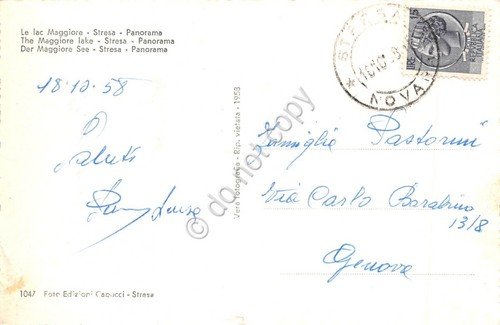 Le lac Maggiore - Stresa - Panorama
The Maggiore lake - Stresa - Panorama
Der Maggiore See - Stresa - Panorama
18.10.58
Saluti
Famiglia Pastorini
Via Carlo Barabino
13/8
Genova
Vera Fotografia - Rip. vietata - 1953
1047 Foto Edizioni Capucci - Stresa
NOVARA
do not copy